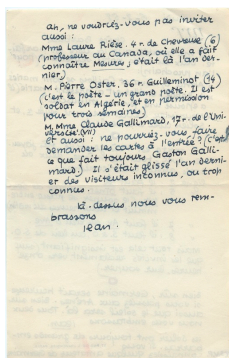 ah, ne voudriez-vous pas inviter
aussi :
Mme Laure Rièse. 4 r. de Chevreuse (6)
(professeur au Canada, où elle a fait
connaître Mesures ; était là l'an der-
nier)
M. Pierre Oster. 36 r. Guilleminot (14)
(c'est le poète - un grand poète. Il est
soldat en Algérie, et en permission
pour trois semaines)
M. Mme Claude Gallimard, 17 r. de l'Uni-
versité (VII)
et aussi : ne pourriez-vous faire
demander les cartes à l'entrée ? (C'est
ce que fait toujours Gaston Galli-
mard.) Il s'était glissé l'an derni-
er des visiteurs inconnus, ou trop
connus.
Là-dessus nous vous rem-
brassons
Jean.